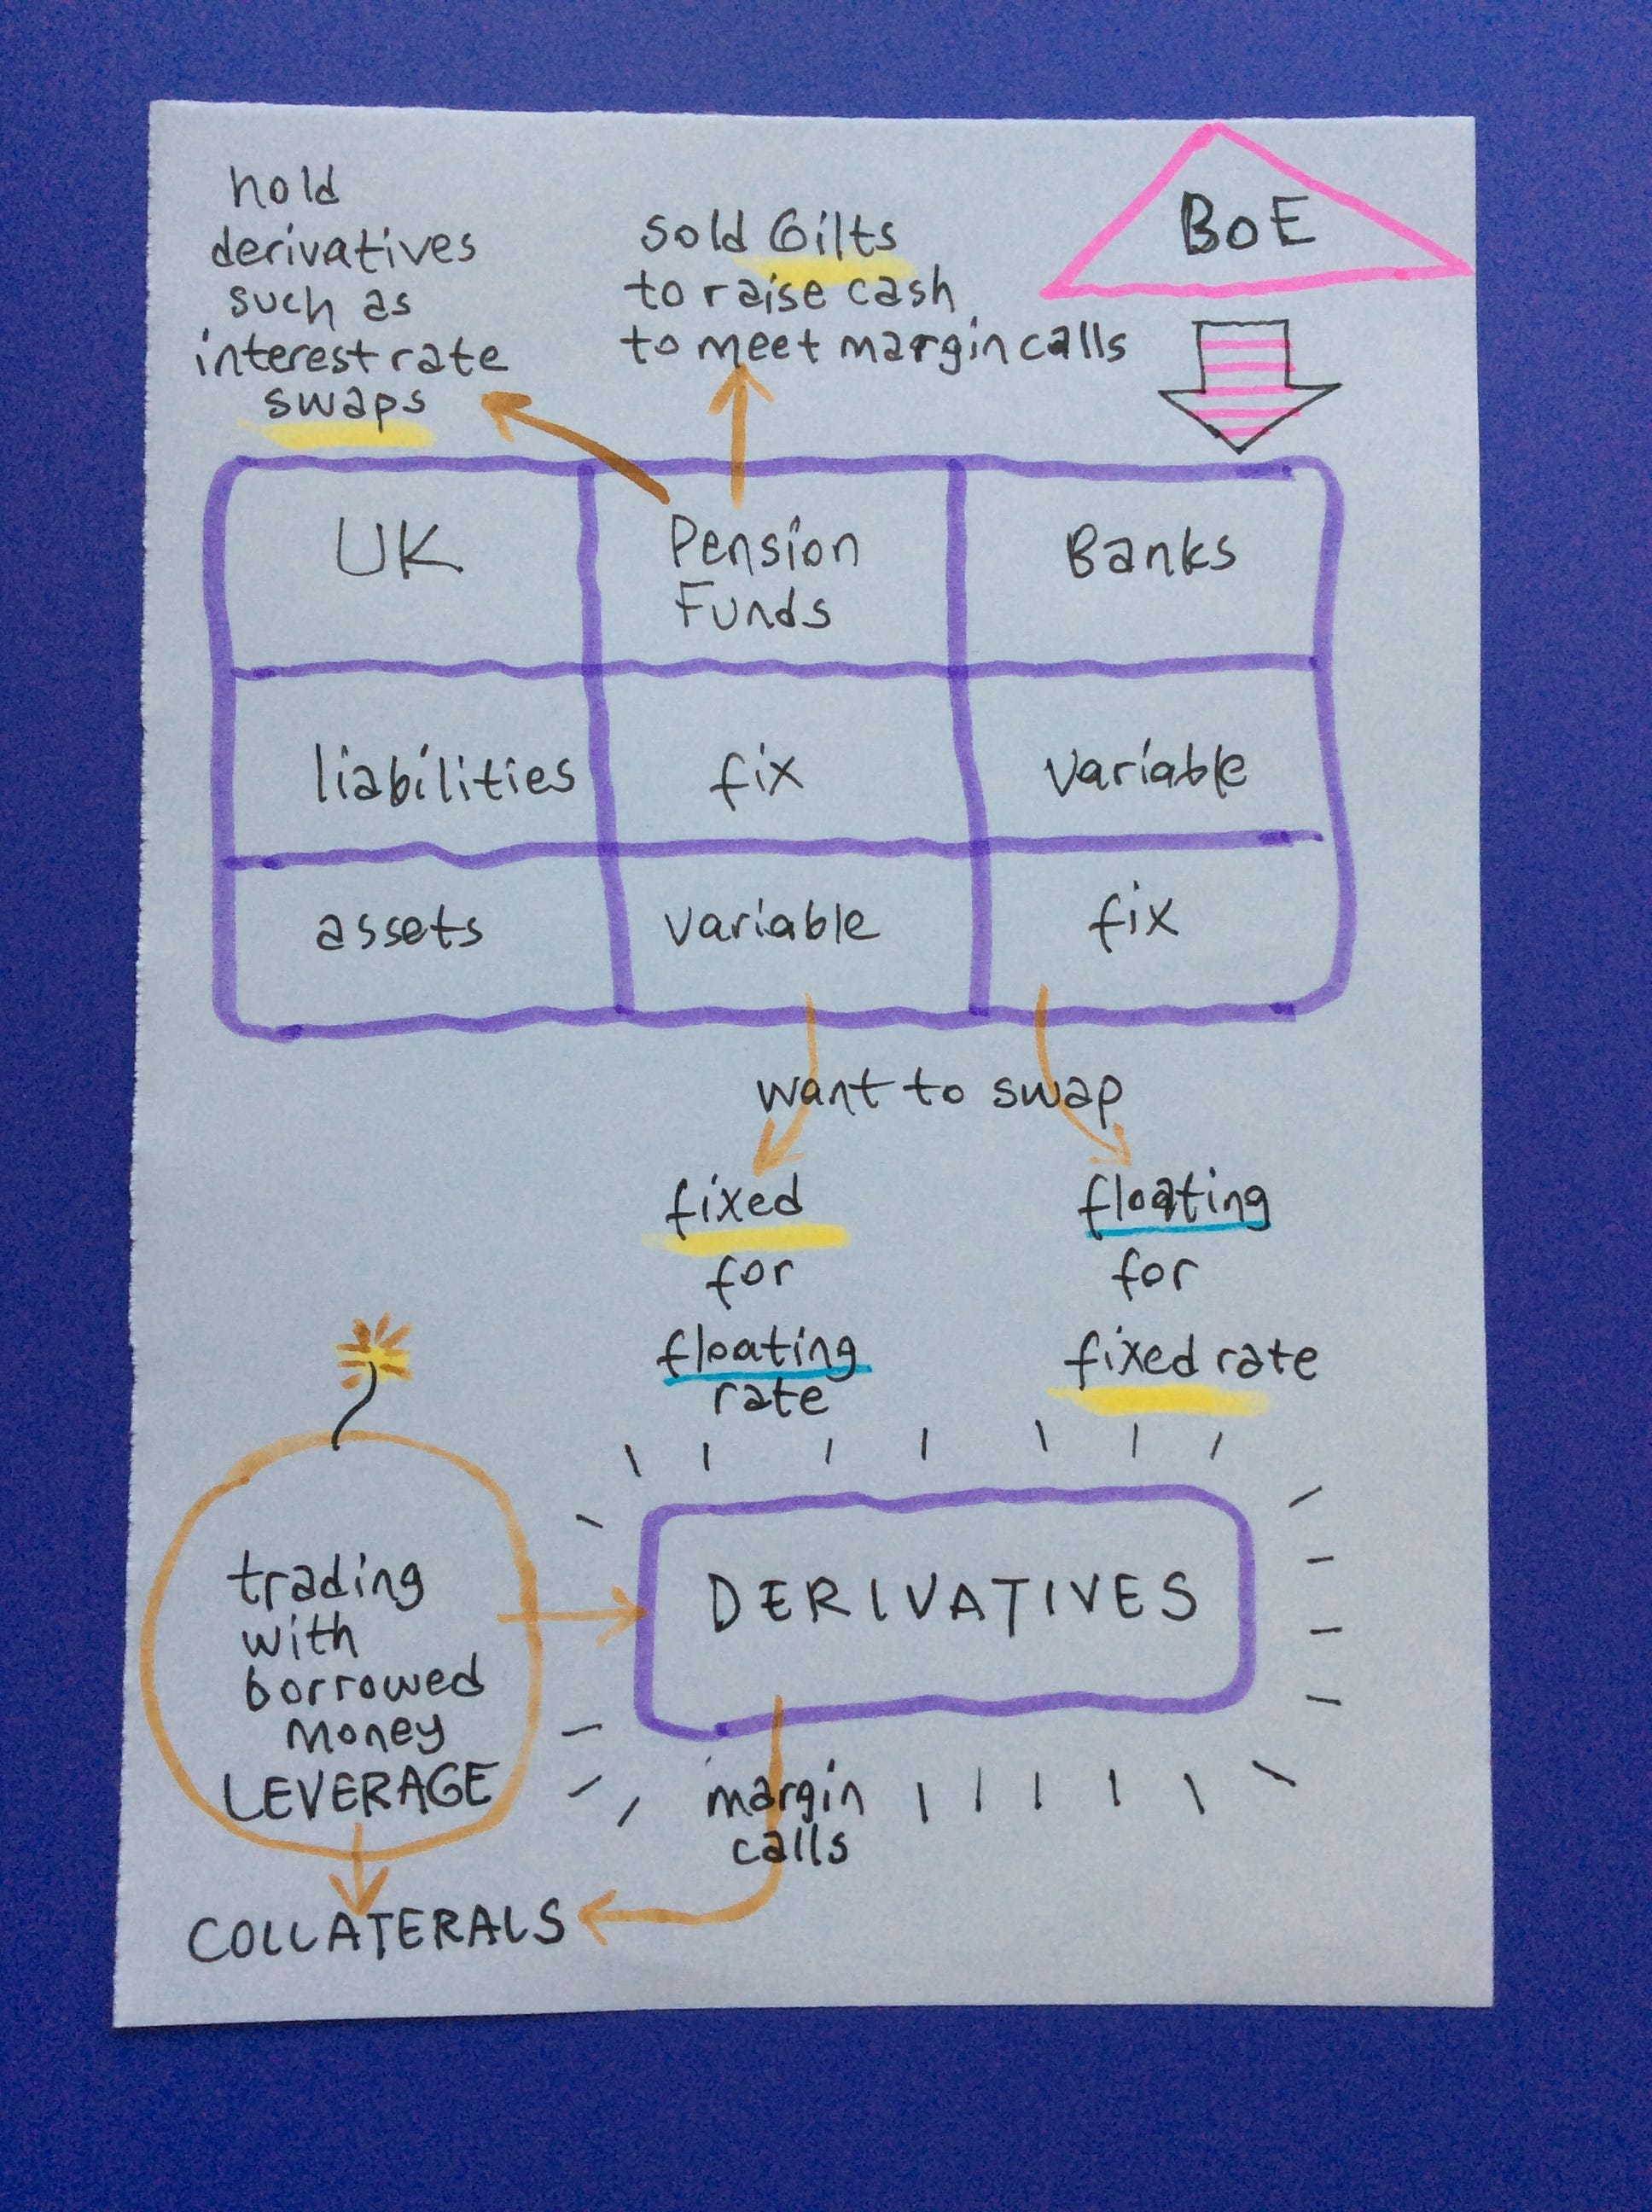 hold
derivatives
such as
interest rate
swaps
sold Gilts
to raise cash
to meet margin calls
BoE
UK
Pension
Funds
Banks
liabilities
fix
variable
assets
variable
fix
want to swap
fixed
for
floating
rate
floating
for
fixed rate
trading
with
borrowed
money
LEVERAGE
DERIVATIVES
margin
calls
COLLATERALS